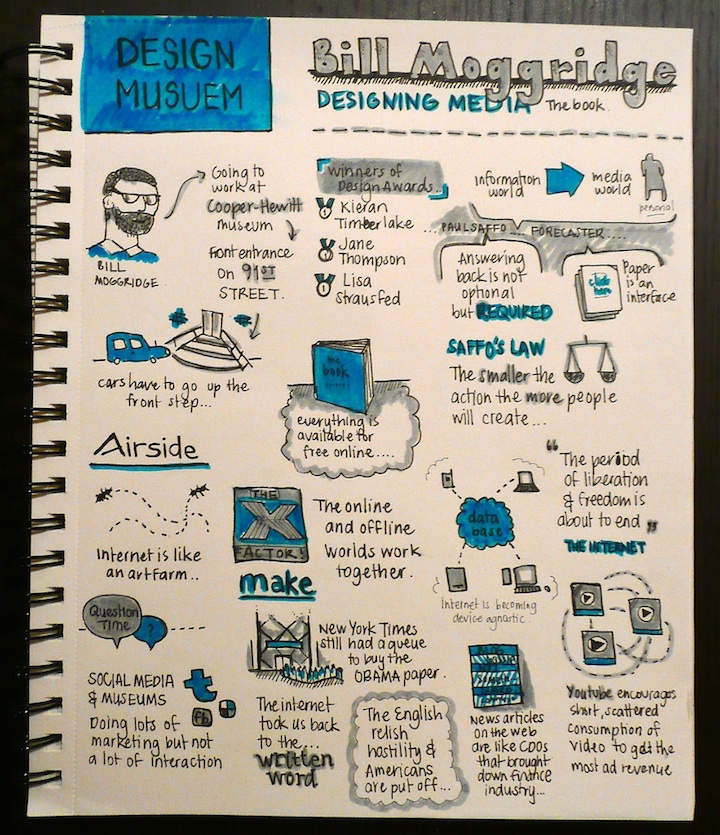 DESIGN
MUSUEM
Bill Moggridge
DESIGNING MEDIA The book.
Going to
work at
Cooper-Hewitt
museum
Front entrance
on 91ST
STREET.
BILL
MOGGRIDGE.
cars have to go up the
front step...
winners of
Design Awards...
Kieran
Timberlake
Jane
Thompson
Lisa
Strausfed
information
world
media
world
personal
... PAUL SAFFO ... FORECASTER ....
Answering
back is not
optional
but REQUIRED
click
here
Paper
is an
interface
SAFFO'S LAW
The smaller the
action the more people
will create...
the
book
everything is
available for
free online....
Airside
Internet is like
an art farm..
THE
X
FACTOR!
The online
and offline
worlds work
together.
make
data
base
Internet is becoming
device agnostic...
"The period
of liberation
& freedom is
about to end"
THE INTERNET
Question
Time
?
SOCIAL MEDIA
& MUSEUMS
t
fb
Doing lots of
marketing but not
a lot of interaction
New York Times
still had a queue
to buy the
OBAMA paper.
The internet
took us back
to the...
written
word
The English
relish
hostility &
Americans
are put off...
News articles
on the web
are like CDOs
that brought
down finance
industry...
Youtube encourages
short, scattered
consumption of
video to get the
most ad revenue